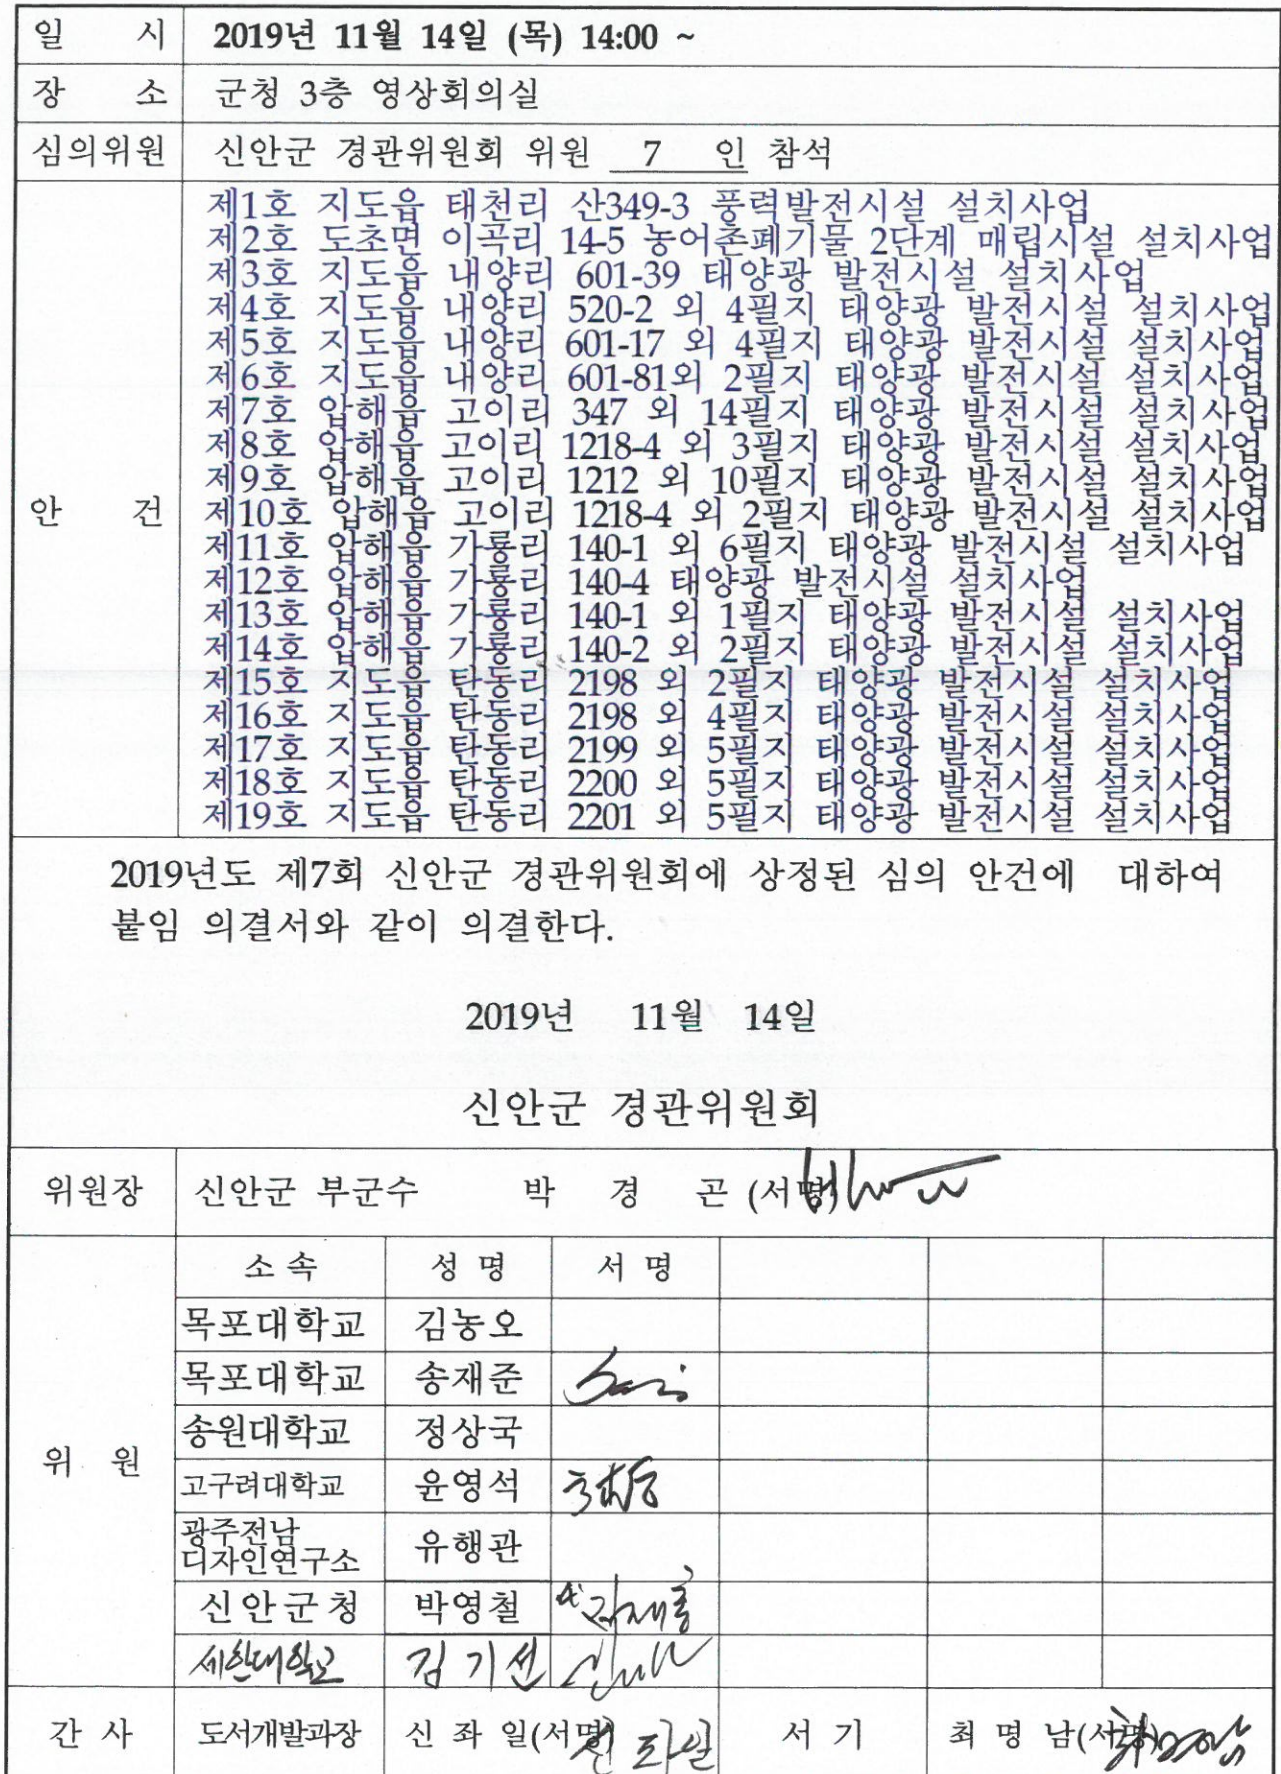 일 시 2019년 11월 14일 (목) 14:00 ~
장 소 군청 3층 영상회의실
심의위원 신안군 경관위원회 위원 7 인 참석
안 건
제1호 지도읍 태천리 산349-3 풍력발전시설 설치사업
제2호 도초면 이곡리 14-5 농어촌폐기물 2단계 매립시설 설치사업
제3호 지도읍 내양리 601-39 태양광 발전시설 설치사업
제4호 지도읍 내양리 520-2 외 4필지 태양광 발전시설 설치사업
제5호 지도읍 내양리 601-17 외 4필지 태양광 발전시설 설치사업
제6호 지도읍 내양리 601-81외 2필지 태양광 발전시설 설치사업
제7호 압해읍 고이리 347 외 14필지 태양광 발전시설 설치사업
제8호 압해읍 고이리 1218-4 외 3필지 태양광 발전시설 설치사업
제9호 압해읍 고이리 1212 외 10필지 태양광 발전시설 설치사업
제10호 압해읍 고이리 1218-4 외 2필지 태양광 발전시설 설치사업
제11호 압해읍 가룡리 140-1 외 6필지 태양광 발전시설 설치사업
제12호 압해읍 가룡리 140-4 태양광 발전시설 설치사업
제13호 압해읍 가룡리 140-1 외 1필지 태양광 발전시설 설치사업
제14호 압해읍 가룡리 140-2 외 2필지 태양광 발전시설 설치사업
제15호 지도읍 탄동리 2198 외 2필지 태양광 발전시설 설치사업
제16호 지도읍 탄동리 2198 외 4필지 태양광 발전시설 설치사업
제17호 지도읍 탄동리 2199 외 5필지 태양광 발전시설 설치사업
제18호 지도읍 탄동리 2200 외 5필지 태양광 발전시설 설치사업
제19호 지도읍 탄동리 2201 외 5필지 태양광 발전시설 설치사업
2019년도 제7회 신안군 경관위원회에 상정된 심의 안건에 대하여
붙임 의결서와 같이 의결한다.
2019년 11월 14일
신안군 경관위원회
위원장 신안군 부군수 박 경 곤 (서명)
위 원
소 속 성 명 서 명
목포대학교 김농오
목포대학교 송재준
송원대학교 정상국
고구려대학교 윤영석
광주전남
디자인연구소 유행관
신안군청 박영철
세한대학교 김기선
간 사 도서개발과장 신 좌 일(서명) 신좌일 서 기 최 명 남(서명)